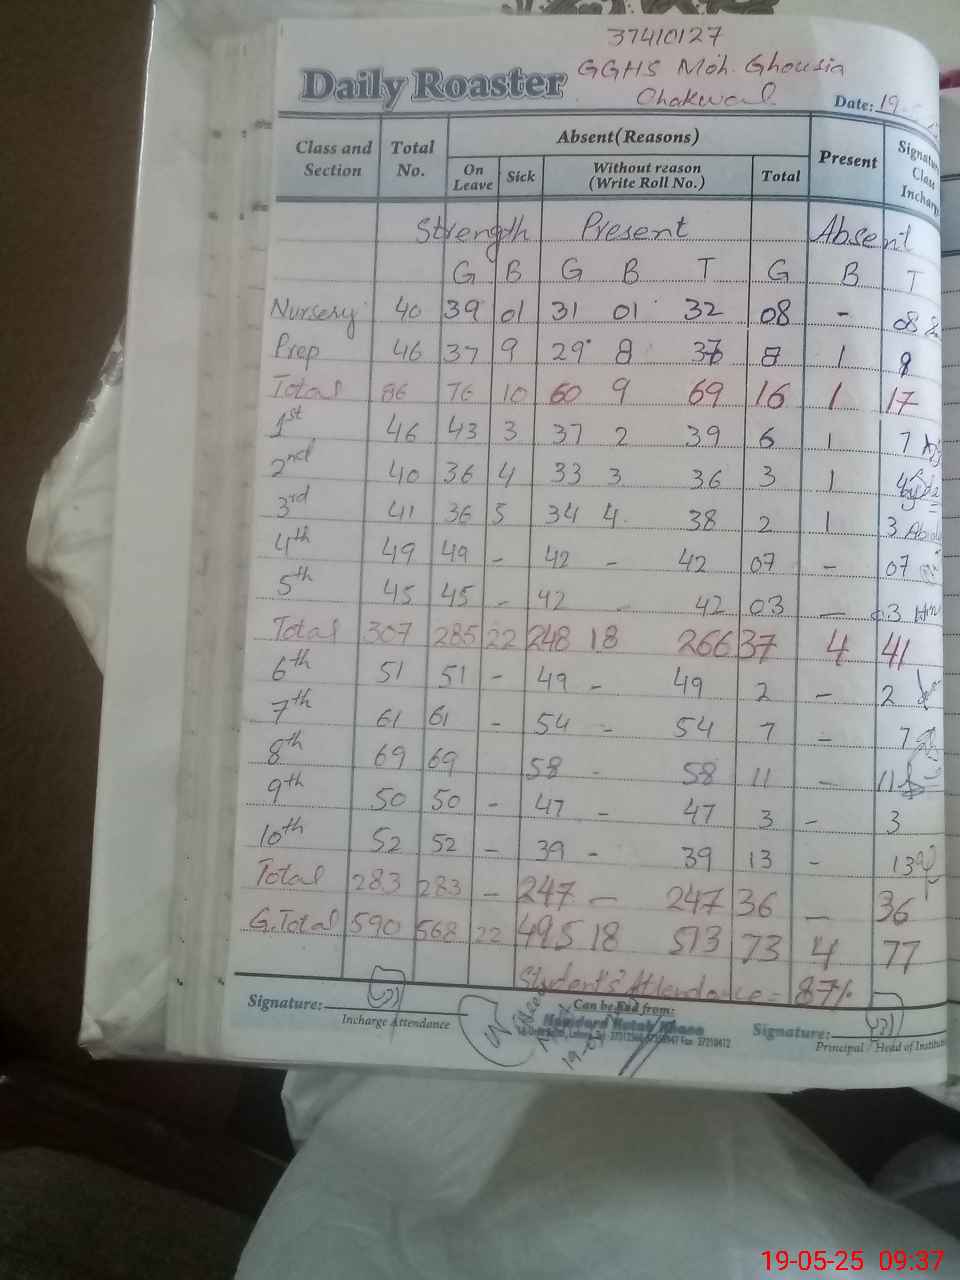 37410127
Daily Roaster GGHS Moh. Ghousia
Chakwal. Date: 19
Class and Section Total No. Absent (Reasons) Present Signature Class Incharge
On Leave Sick Without reason (Write Roll No.) Total
Strength Present Absent
G B G B T G B T
Nursery 40 39 01 31 01 32 08 - 08
Prep 46 37 9 29 8 8 1 8
Total 86 76 10 60 9 69 16 1 17
1st 46 43 3 37 2 39 6 1 7
2nd 40 36 4 33 3 36 3 1 4
3rd 41 36 5 34 4 38 2 1 3
4th 49 49 - 42 - 42 07 - 07
5th 45 45 - 42 - 42 03 - 03
Total 307 285 22 248 18 266 37 4 41
6th 51 51 - 49 - 49 2 - 2
7th 61 61 - 54 - 54 7 - 7
8th 69 69 58 - 58 11 - 11
9th 50 50 - 47 - 47 3 - 3
10th 52 52 - 39 - 39 13 - 13
Total 283 283 - 247 - 247 36 - 36
G.Total 590 568 22 495 18 513 73 4 77
Students' Attendance = 87%
Signature: Can be had from: Signature:
Incharge Attendance Hamdard Kutab Khana Principal / Head of Institu
19-05-25 09:37